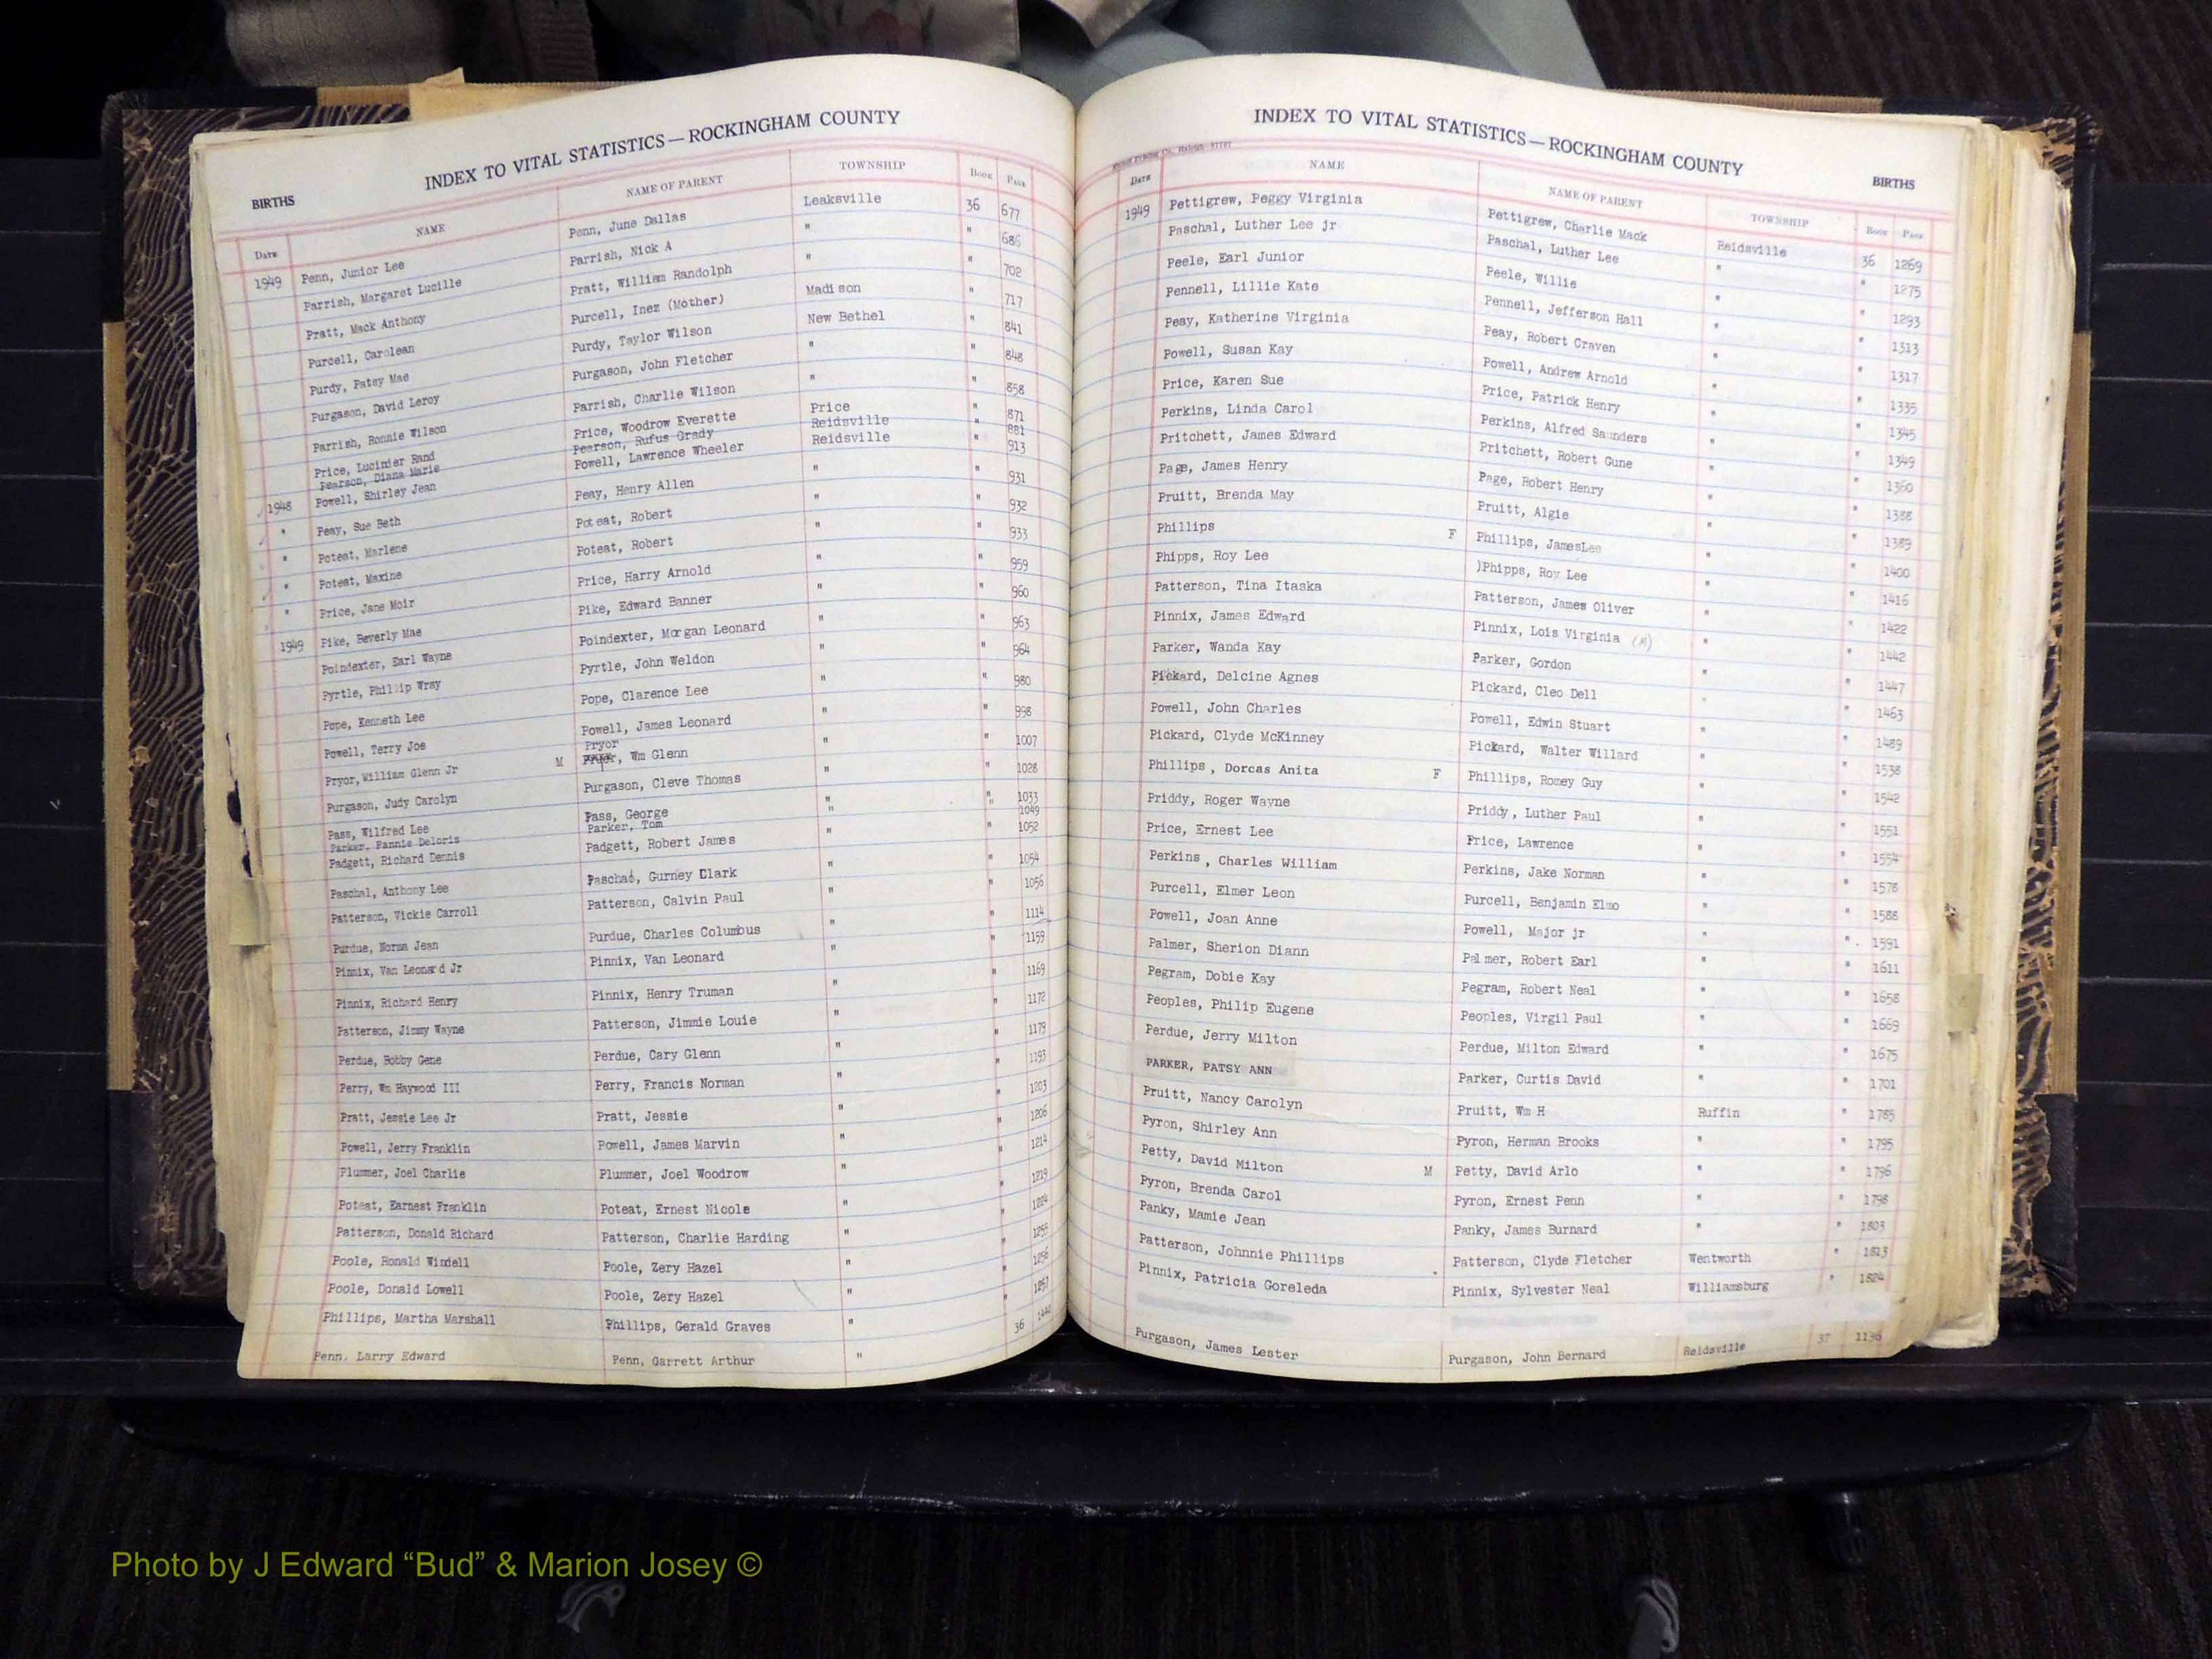 INDEX TO VITAL STATISTICS—ROCKINGHAM COUNTY
BIRTHS
DATE NAME NAME OF PARENT TOWNSHIP BOOK PAGE
1949 Penn, Junior Lee Penn, June Dallas Leaksville 36 677
Parrish, Margaret Lucille Parrish, Nick A " " 686
Pratt, Mack Anthony Pratt, William Randolph " " 702
Purcell, Carolean Purcell, Inez (Mother) Madison " 717
Purdy, Patsy Mae Purdy, Taylor Wilson New Bethel " 841
Purgason, David Leroy Purgason, John Fletcher " " 848
Parrish, Ronnie Wilson Parrish, Charlie Wilson " " 858
Price, Lucinder Rand Price, Woodrow Everette Price " 871
Pearson, Diana Marie Pearson, Rufus Grady Reidsville " 881
1948 Powell, Shirley Jean Powell, Lawrence Wheeler Reidsville " 913
" Peay, Sue Beth Peay, Henry Allen " " 931
" Poteat, Marlene Poteat, Robert " " 932
" Poteat, Maxine Poteat, Robert " " 933
" Price, Jane Moir Price, Harry Arnold " " 959
1949 Pike, Beverly Mae Pike, Edward Banner " " 960
Poindexter, Earl Wayne Poindexter, Morgan Leonard " " 963
Pyrtle, Phillip Wray Pyrtle, John Weldon " " 964
Pope, Kenneth Lee Pope, Clarence Lee " " 980
Powell, Terry Joe Powell, James Leonard " " 998
Pryor, William Glenn Jr M Pryor, Wm Glenn " " 1007
Purgason, Judy Carolyn Purgason, Cleve Thomas " " 1028
Pass, Wilfred Lee Pass, George " " 1033
Parker, Fannie Deloris Parker, Tom " " 1049
Padgett, Richard Dennis Padgett, Robert James " " 1052
Paschal, Anthony Lee Paschal, Gurney Clark " " 1054
Patterson, Vickie Carroll Patterson, Calvin Paul " " 1056
Purdue, Norma Jean Purdue, Charles Columbus " " 1114
Pinnix, Van Leonard Jr Pinnix, Van Leonard " " 1159
Pinnix, Richard Henry Pinnix, Henry Truman " " 1169
Patterson, Jimmy Wayne Patterson, Jimmie Louie " " 1172
Perdue, Bobby Gene Perdue, Cary Glenn " " 1179
Perry, Wm Haywood III Perry, Francis Norman " " 1193
Pratt, Jessie Lee Jr Pratt, Jessie " " 1203
Powell, Jerry Franklin Powell, James Marvin " " 1206
Plummer, Joel Charlie Plummer, Joel Woodrow " " 1214
Poteat, Earnest Franklin Poteat, Ernest Nicole " " 1219
Patterson, Donald Richard Patterson, Charlie Harding " " 1224
Poole, Ronald Windell Poole, Zery Hazel " " 1255
Poole, Donald Lowell Poole, Zery Hazel " " 1256
Phillips, Martha Marshall Phillips, Gerald Graves " " 1257
Penn, Larry Edward Penn, Garrett Arthur " 36
INDEX TO VITAL STATISTICS—ROCKINGHAM COUNTY
BIRTHS
DATE NAME NAME OF PARENT TOWNSHIP BOOK PAGE
1949 Pettigrew, Peggy Virginia Pettigrew, Charlie Mack Reidsville 36 1269
Paschal, Luther Lee jr Paschal, Luther Lee " " 1275
Peele, Earl Junior Peele, Willie " " 1293
Pennell, Lillie Kate Pennell, Jefferson Hall " " 1313
Peay, Katherine Virginia Peay, Robert Craven " " 1317
Powell, Susan Kay Powell, Andrew Arnold " " 1335
Price, Karen Sue Price, Patrick Henry " " 1345
Perkins, Linda Carol Perkins, Alfred Saunders " " 1349
Pritchett, James Edward Pritchett, Robert Gune " " 1360
Page, James Henry Page, Robert Henry " " 1388
Pruitt, Brenda May Pruitt, Algie " " 1389
Phillips F Phillips, JamesLee " " 1400
Phipps, Roy Lee )Phipps, Roy Lee " " 1416
Patterson, Tina Itaska Patterson, James Oliver " " 1422
Pinnix, James Edward Pinnix, Lois Virginia (M) " " 1442
Parker, Wanda Kay Parker, Gordon " " 1447
Pickard, Delcine Agnes Pickard, Cleo Dell " " 1463
Powell, John Charles Powell, Edwin Stuart " " 1489
Pickard, Clyde McKinney Pickard, Walter Willard " " 1538
Phillips , Dorcas Anita F Phillips, Romey Guy " " 1542
Priddy, Roger Wayne Priddy, Luther Paul " " 1551
Price, Ernest Lee Price, Lawrence " " 1554
Perkins , Charles William Perkins, Jake Norman " " 1578
Purcell, Elmer Leon Purcell, Benjamin Elmo " " 1588
Powell, Joan Anne Powell, Major jr " " 1591
Palmer, Sherion Diann Palmer, Robert Earl " " 1611
Pegram, Dobie Kay Pegram, Robert Neal " " 1658
Peoples, Philip Eugene Peoples, Virgil Paul " " 1669
Perdue, Jerry Milton Perdue, Milton Edward " " 1675
PARKER, PATSY ANN Parker, Curtis David " " 1701
Pruitt, Nancy Carolyn Pruitt, Wm H Ruffin " 1785
Pyron, Shirley Ann Pyron, Herman Brooks " " 1795
Petty, David Milton M Petty, David Arlo " " 1796
Pyron, Brenda Carol Pyron, Ernest Penn " " 1798
Panky, Mamie Jean Panky, James Burnard " " 1803
Patterson, Johnnie Phillips Patterson, Clyde Fletcher Wentworth " 1813
Pinnix, Patricia Goreleda Pinnix, Sylvester Neal Williamsburg " 1824
Purgason, James Lester Purgason, John Bernard Reidsville 37 1136
Photo by J Edward “Bud” & Marion Josey ©